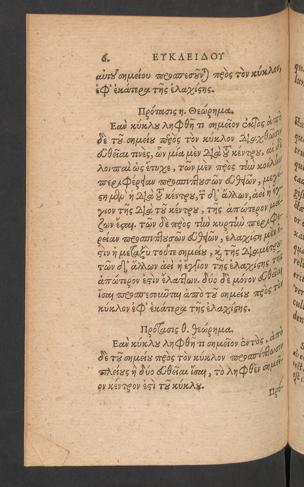 6. ΕΥΚΛΕΙΔΟΥ
αὐτοῦ σημείου προσπεσοῦν) πρὸς τὸν κύκλον,
ἐφ' ἑκάτερα τῆς ἐλαχίσης.
Πρότασις η. Θεώρημα.
Εαν κύκλου ληφθῇ τι σημεῖον ἐκτὸς, ἀπὸ
δὲ τοῦ σημείου πρὸς τὸν κύκλον διαχθῶσιν
εὐθεῖαι τινὲς, ὧν μία μὲν διὰ τοῦ κέντρου, αἱ δὲ
λοιπαὶ ὡς ἔτυχε, τῶν μὲν πρὸς τὴν κοίλην
περιφέρειαν προσπιπτουσῶν εὐθειῶν, μεγί-
ση μὲν ἡ διὰ τοῦ κέντρου, τ δ' ἄλλων, ἀεὶ ἡ ἔγ-
γιον τῆς διὰ τοῦ κέντρου, τῆς ἀπώτερον μεί-
ζων ἔσαι. τῶν δὲ πρὸς τὴν κυρτὴν περιφέ-
ρειαν προσπιπτουσῶν εὐθειῶν, ἐλαχίση μέν ἐ-
σὶν ἡ μεταξὺ τοῦ τε σημείου, κ τῆς διαμέτρου
τῶν δ' ἄλλων ἀεὶ ἡ ἔγγιον τῆς ἐλαχίσης τῆς
ἀπώτερον ἐσὶν ἐλάττων. δύο δὲ μόνον εὐθεῖαι
ἴσαι προσπεσοῦνται ἀπὸ τοῦ σημείου πρὸς τὸν
κύκλον ἐφ' ἑκάτερα τῆς ἐλαχίσης.
Πρότασις θ. θεώρημα.
Εαν κύκλου ληφθῇ τι σημεῖον ἐντὸς, ἀπὸ
δὲ τοῦ σημείου πρὸς τὸν κύκλον προσπίπτωσι
πλείους ἢ δύο εὐθεῖαι ἴσαι, τὸ ληφθὲν σημεῖ-
ον κέντρον ἐσὶ τοῦ κύκλου.